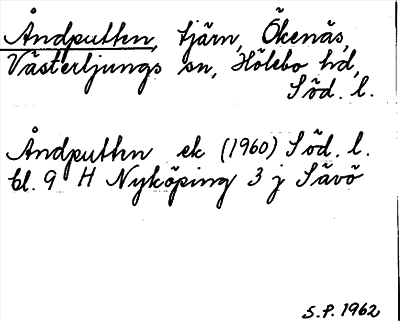 Åndputten, tjärn, Ökenäs,
Västerljungs sn, Hölebo hd,
Söd. l.
Åndputten ek (1960) Söd. l.
bl. 9 H Nyköping 3 j Sävö
S.P. 1962